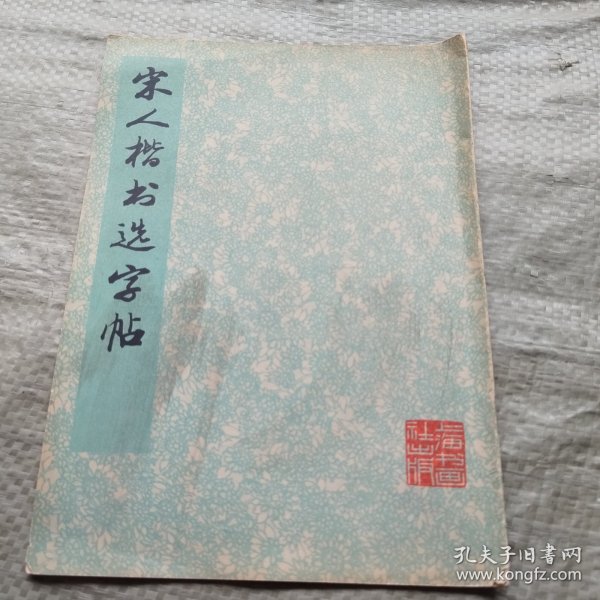 宋人楷书选字帖
上海书画
社出版
孔夫子旧书网
www.kongfz.com